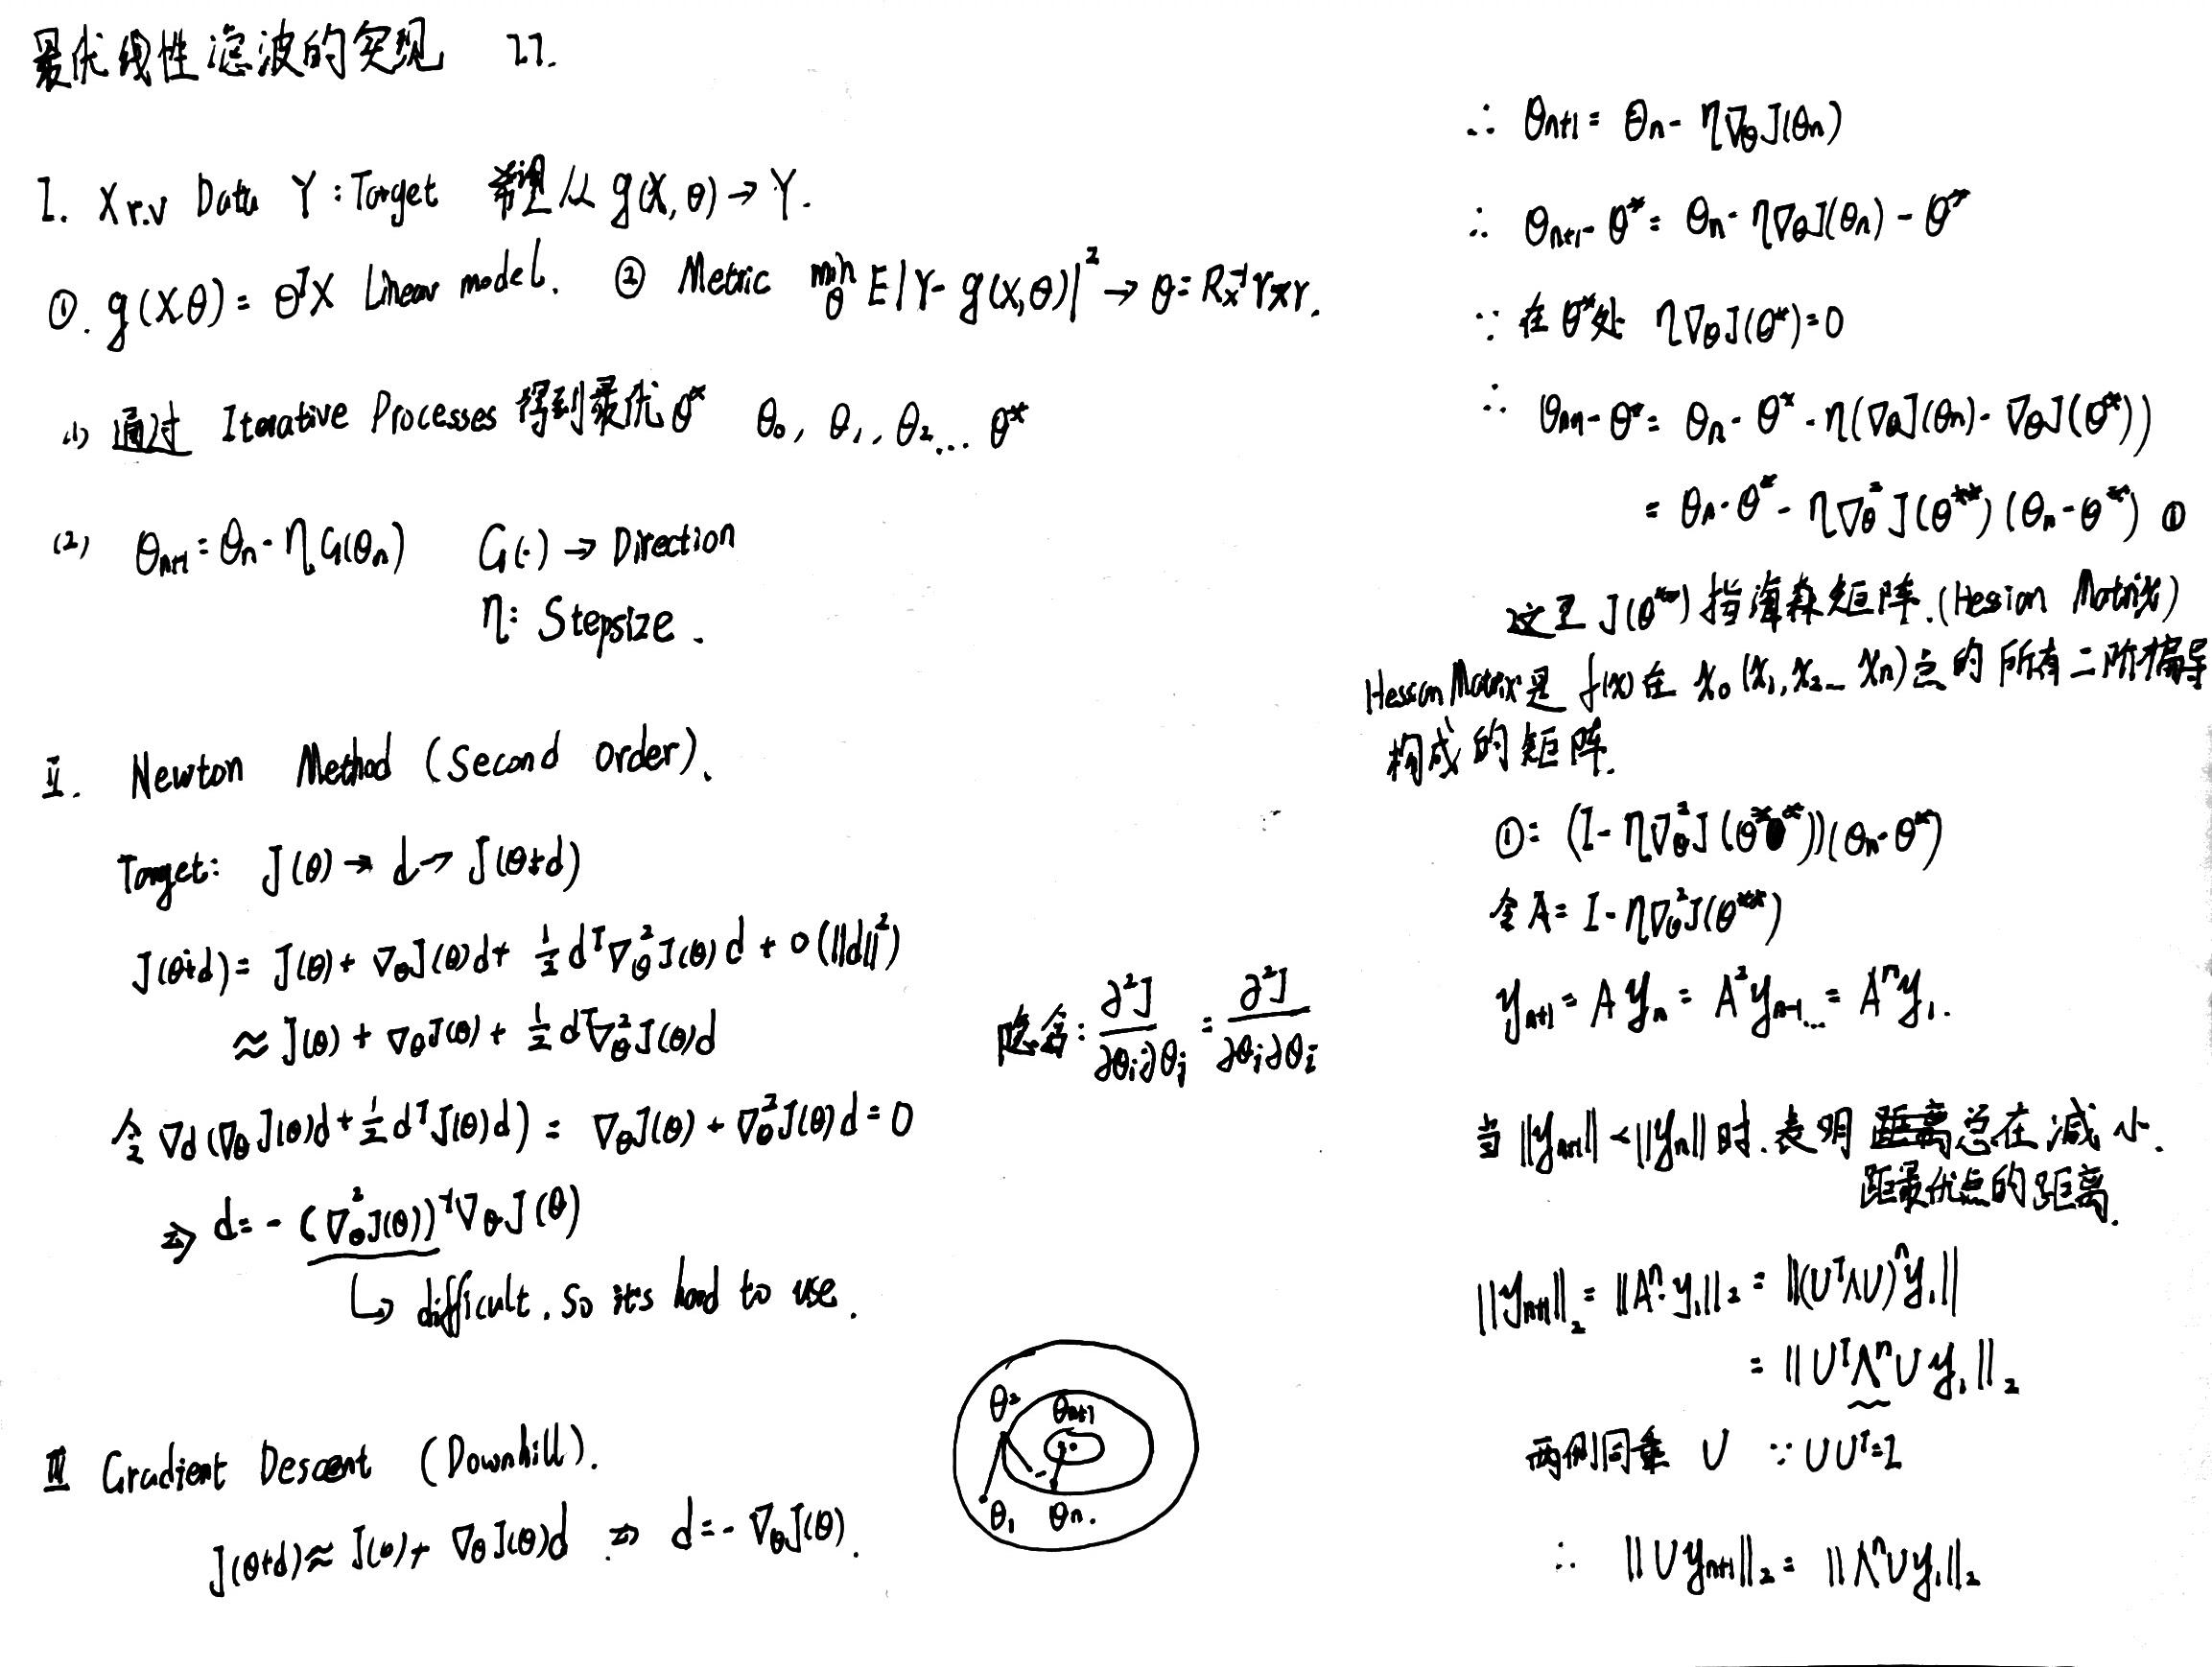 最优线性滤波的实现 11.
I. X r.v Data Y : Target 希望从 g(X, θ) → Y.
①. g(X θ) = θᵀX Linear model. ② Metric min_θ E|Y - g(X,θ)|² → θ = Rx⁻¹ r_XY.
(1) 通过 Iterative Processes 得到最优 θ* θ₀, θ₁, θ₂... θ*
(2) θ_{n+1} = θ_n - η G(θ_n) G(·) → Direction
η: Stepsize.
II. Newton Method (Second order).
Target: J(θ) → d → J(θ+d)
J(θ+d) = J(θ) + ∇_θ J(θ) d + ½ dᵀ ∇_θ² J(θ) d + o(‖d‖²)
≈ J(θ) + ∇_θ J(θ) + ½ dᵀ ∇_θ² J(θ) d
隐含: ∂²J/∂θ_i∂θ_j = ∂²J/∂θ_j∂θ_i
令 ∇d (∇_θ J(θ) d + ½ dᵀ J(θ) d) = ∇_θ J(θ) + ∇_θ² J(θ) d = 0
⇒ d = - (∇_θ² J(θ))⁻¹ ∇_θ J(θ)
↳ difficult. So it's hard to use.
III Gradient Descent (Downhill).
J(θ+d) ≈ J(θ) + ∇_θ J(θ) d ⇒ d = - ∇_θ J(θ).
θ² θ_{n+1}
θ₁ θn.
∴ θ_{n+1} = θ_n - η ∇_θ J(θ_n)
∴ θ_{n+1} - θ* = θ_n - η ∇_θ J(θ_n) - θ*
∵ 在 θ* 处 η ∇_θ J(θ*) = 0
∴ θ_{n+1} - θ* = θ_n - θ* - η(∇_θ J(θ_n) - ∇_θ J(θ*))
= θ_n - θ* - η ∇_θ² J(θ**) (θ_n - θ*) ①
这里 J(θ**) 指海森矩阵. (Hession Matrix)
Hession Matrix 是 f(x) 在 x₀ (x₁, x₂... x_n) 点的所有二阶偏导
构成的矩阵.
① = (I - η ∇_θ² J(θ**))(θ_n - θ*)
令 A = I - η ∇_θ² J(θ**)
y_{n+1} = A y_n = A² y_{n-1} ... = Aⁿ y₁.
当 ‖y_{n+1}‖ < ‖y_n‖ 时. 表明 距离总在减小.
距最优点的距离.
‖y_{n+1}‖₂ = ‖Aⁿ · y₁‖₂ = ‖(UᵀΛU)ⁿ y₁‖
= ‖UᵀΛⁿU y₁‖₂
两侧同乘 U ∵ UUᵀ = I
∴ ‖U y_{n+1}‖₂ = ‖ΛⁿU y₁‖₂